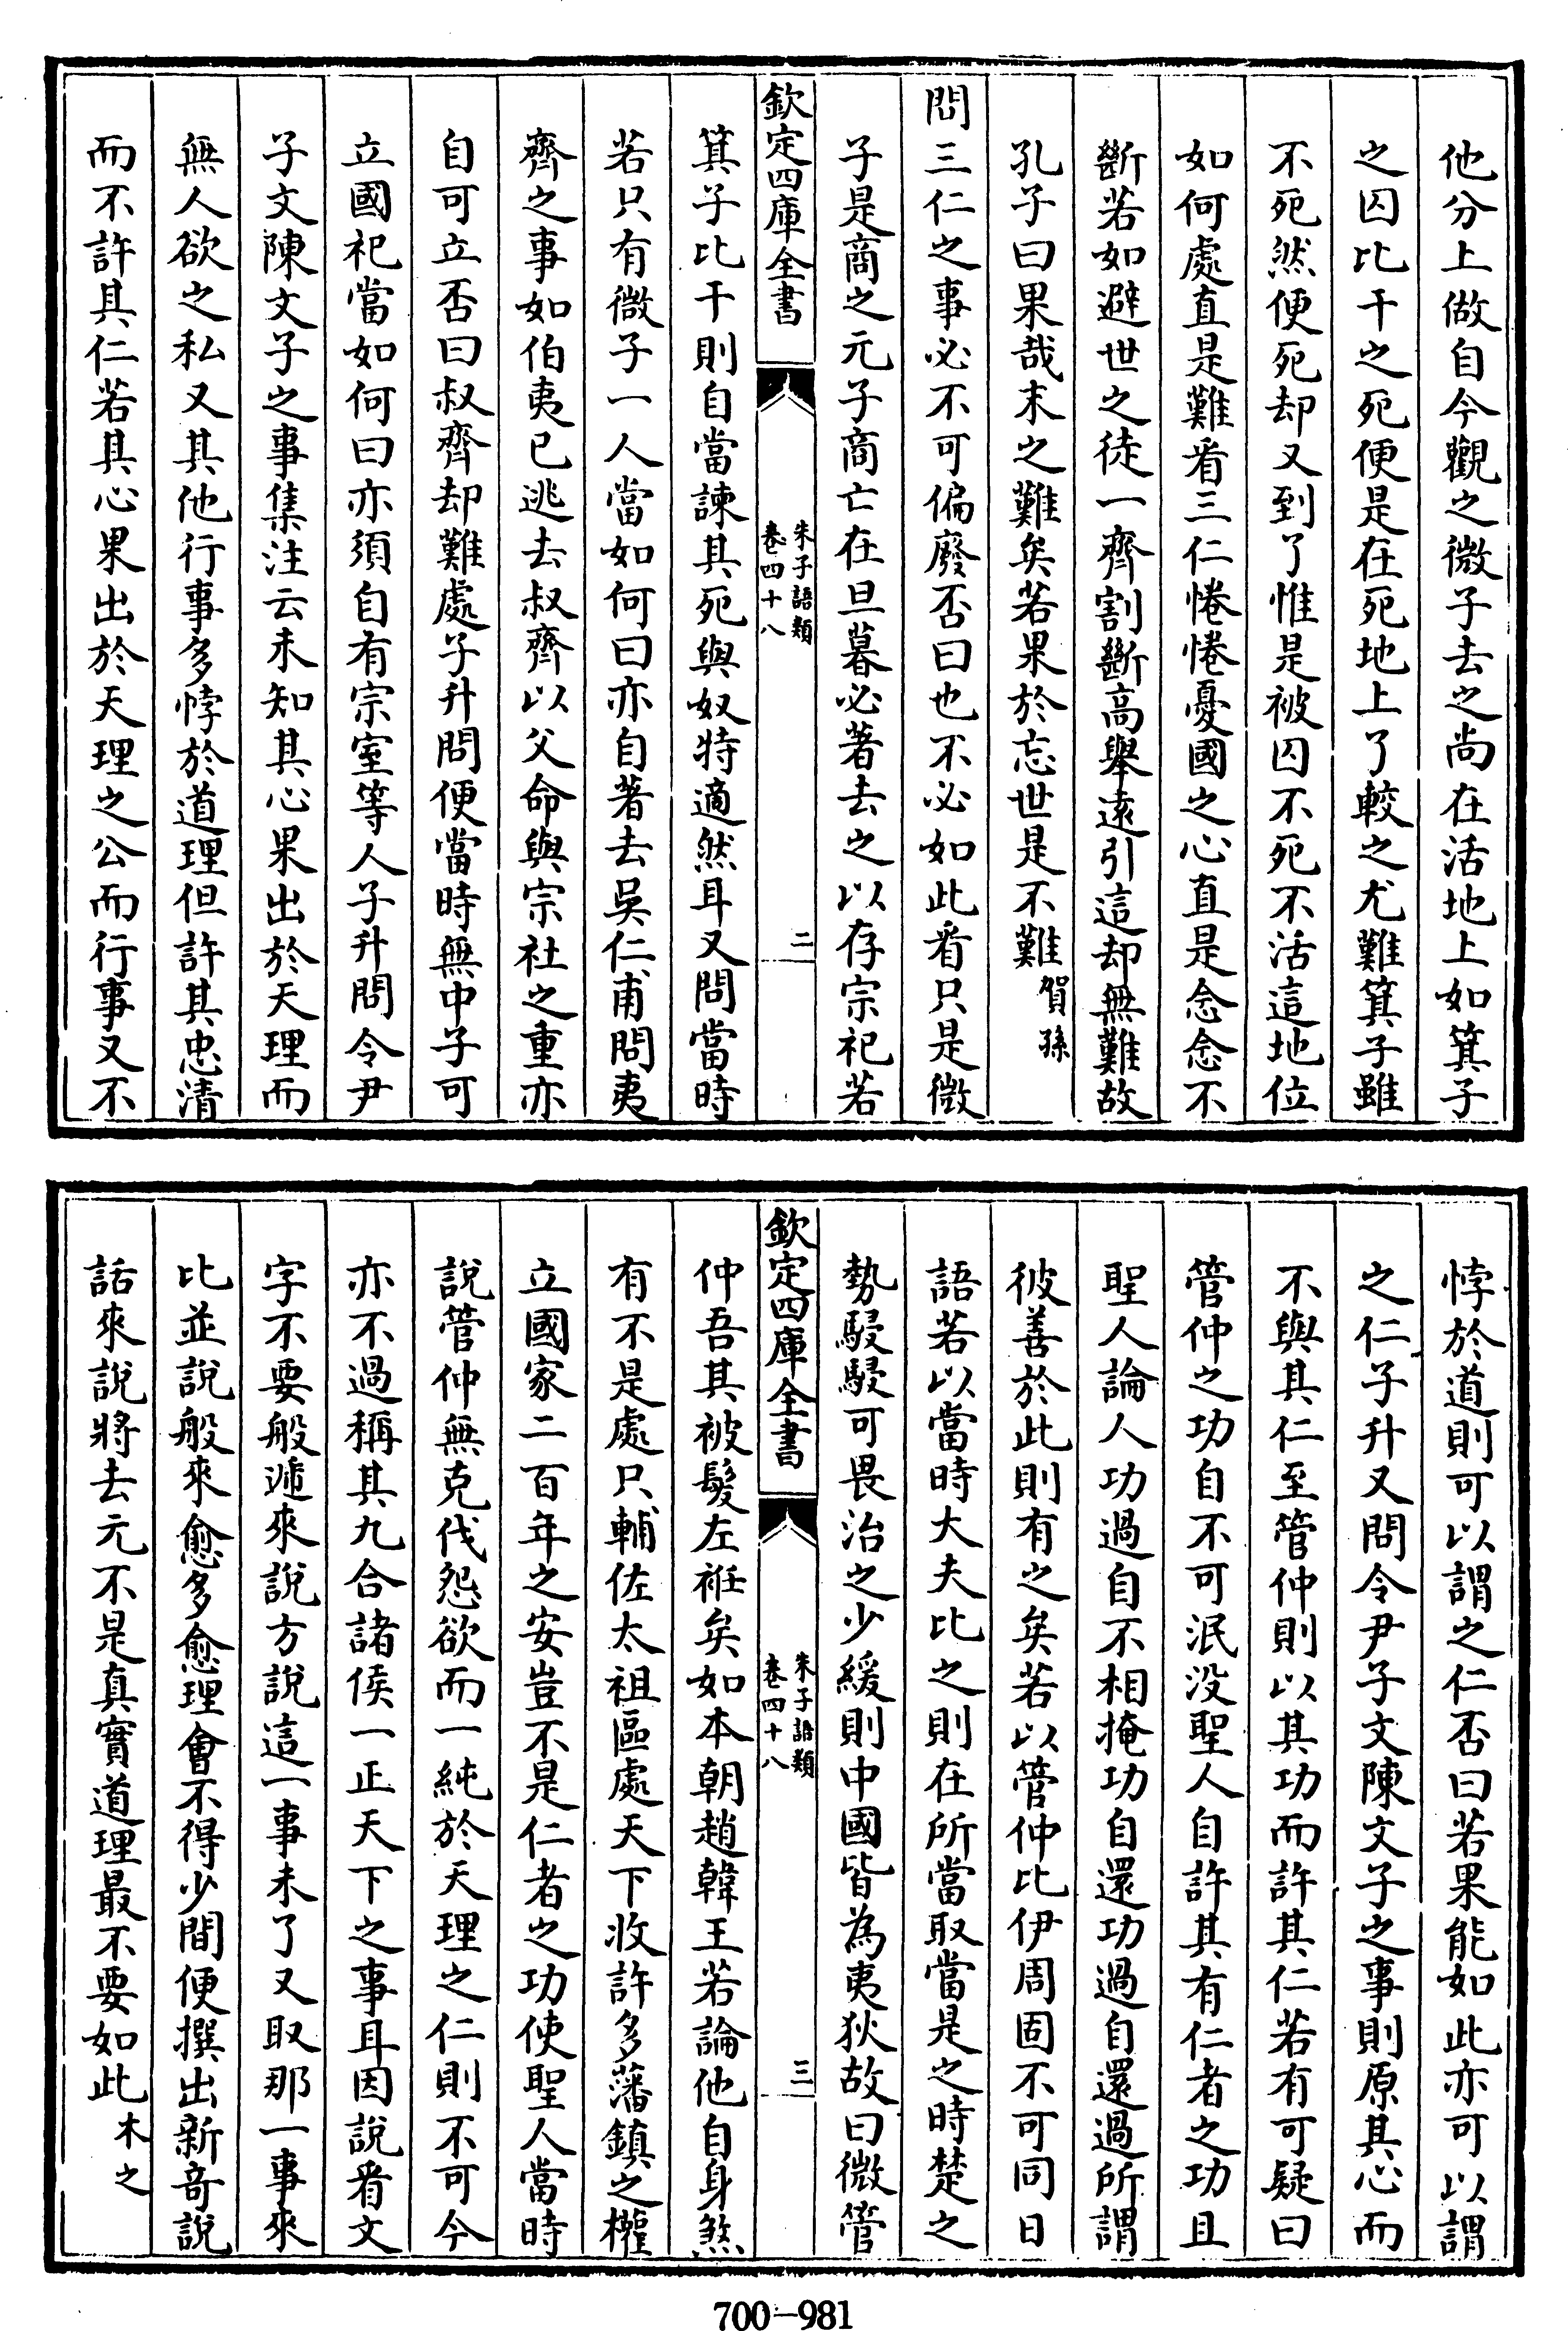 他分上做自今觀之微子去之尚在活地上如箕子
之囚比干之死便是在死地上了較之尤難箕子雖
不死然便死却又到了惟是被囚不死不活這地位
如何處直是難看三仁惓惓憂國之心直是念念不
斷若如避世之徒一齊割斷高舉遠引這却無難故
孔子曰果哉末之難矣若果於忘世是不難賀孫
問三仁之事必不可偏廢否曰也不必如此看只是微
子是商之元子商亡在旦暮必著去之以存宗祀若
欽定四庫全書
朱子語類
卷四十八
二
箕子比干則自當諫其死與奴特適然耳又問當時
若只有微子一人當如何曰亦自著去吳仁甫問夷
齊之事如伯夷已逃去叔齊以父命與宗社之重亦
自可立否曰叔齊却難處子升問便當時無中子可
立國祀當如何曰亦須自有宗室等人子升問令尹
子文陳文子之事集注云未知其心果出於天理而
無人欲之私又其他行事多悖於道理但許其忠清
而不許其仁若其心果出於天理之公而行事又不
悖於道則可以謂之仁否曰若果能如此亦可以謂
之仁子升又問令尹子文陳文子之事則原其心而
不與其仁至管仲則以其功而許其仁若有可疑曰
管仲之功自不可泯没聖人自許其有仁者之功且
聖人論人功過自不相掩功自還功過自還過所謂
彼善於此則有之矣若以管仲比伊周固不可同日
語若以當時大夫比之則在所當取當是之時楚之
勢駸駸可畏治之少緩則中國皆為夷狄故曰微管
欽定四庫全書
朱子語類
卷四十八
三
仲吾其被髮左袵矣如本朝趙韓王若論他自身煞
有不是處只輔佐太祖區處天下收許多藩鎮之權
立國家二百年之安豈不是仁者之功使聖人當時
說管仲無克伐怨欲而一純於天理之仁則不可今
亦不過稱其九合諸侯一正天下之事耳因說看文
字不要般遞來說方說這一事未了又取那一事來
比並說般來愈多愈理會不得少間便撰出新奇說
話來說將去元不是真實道理最不要如此木之
700-981